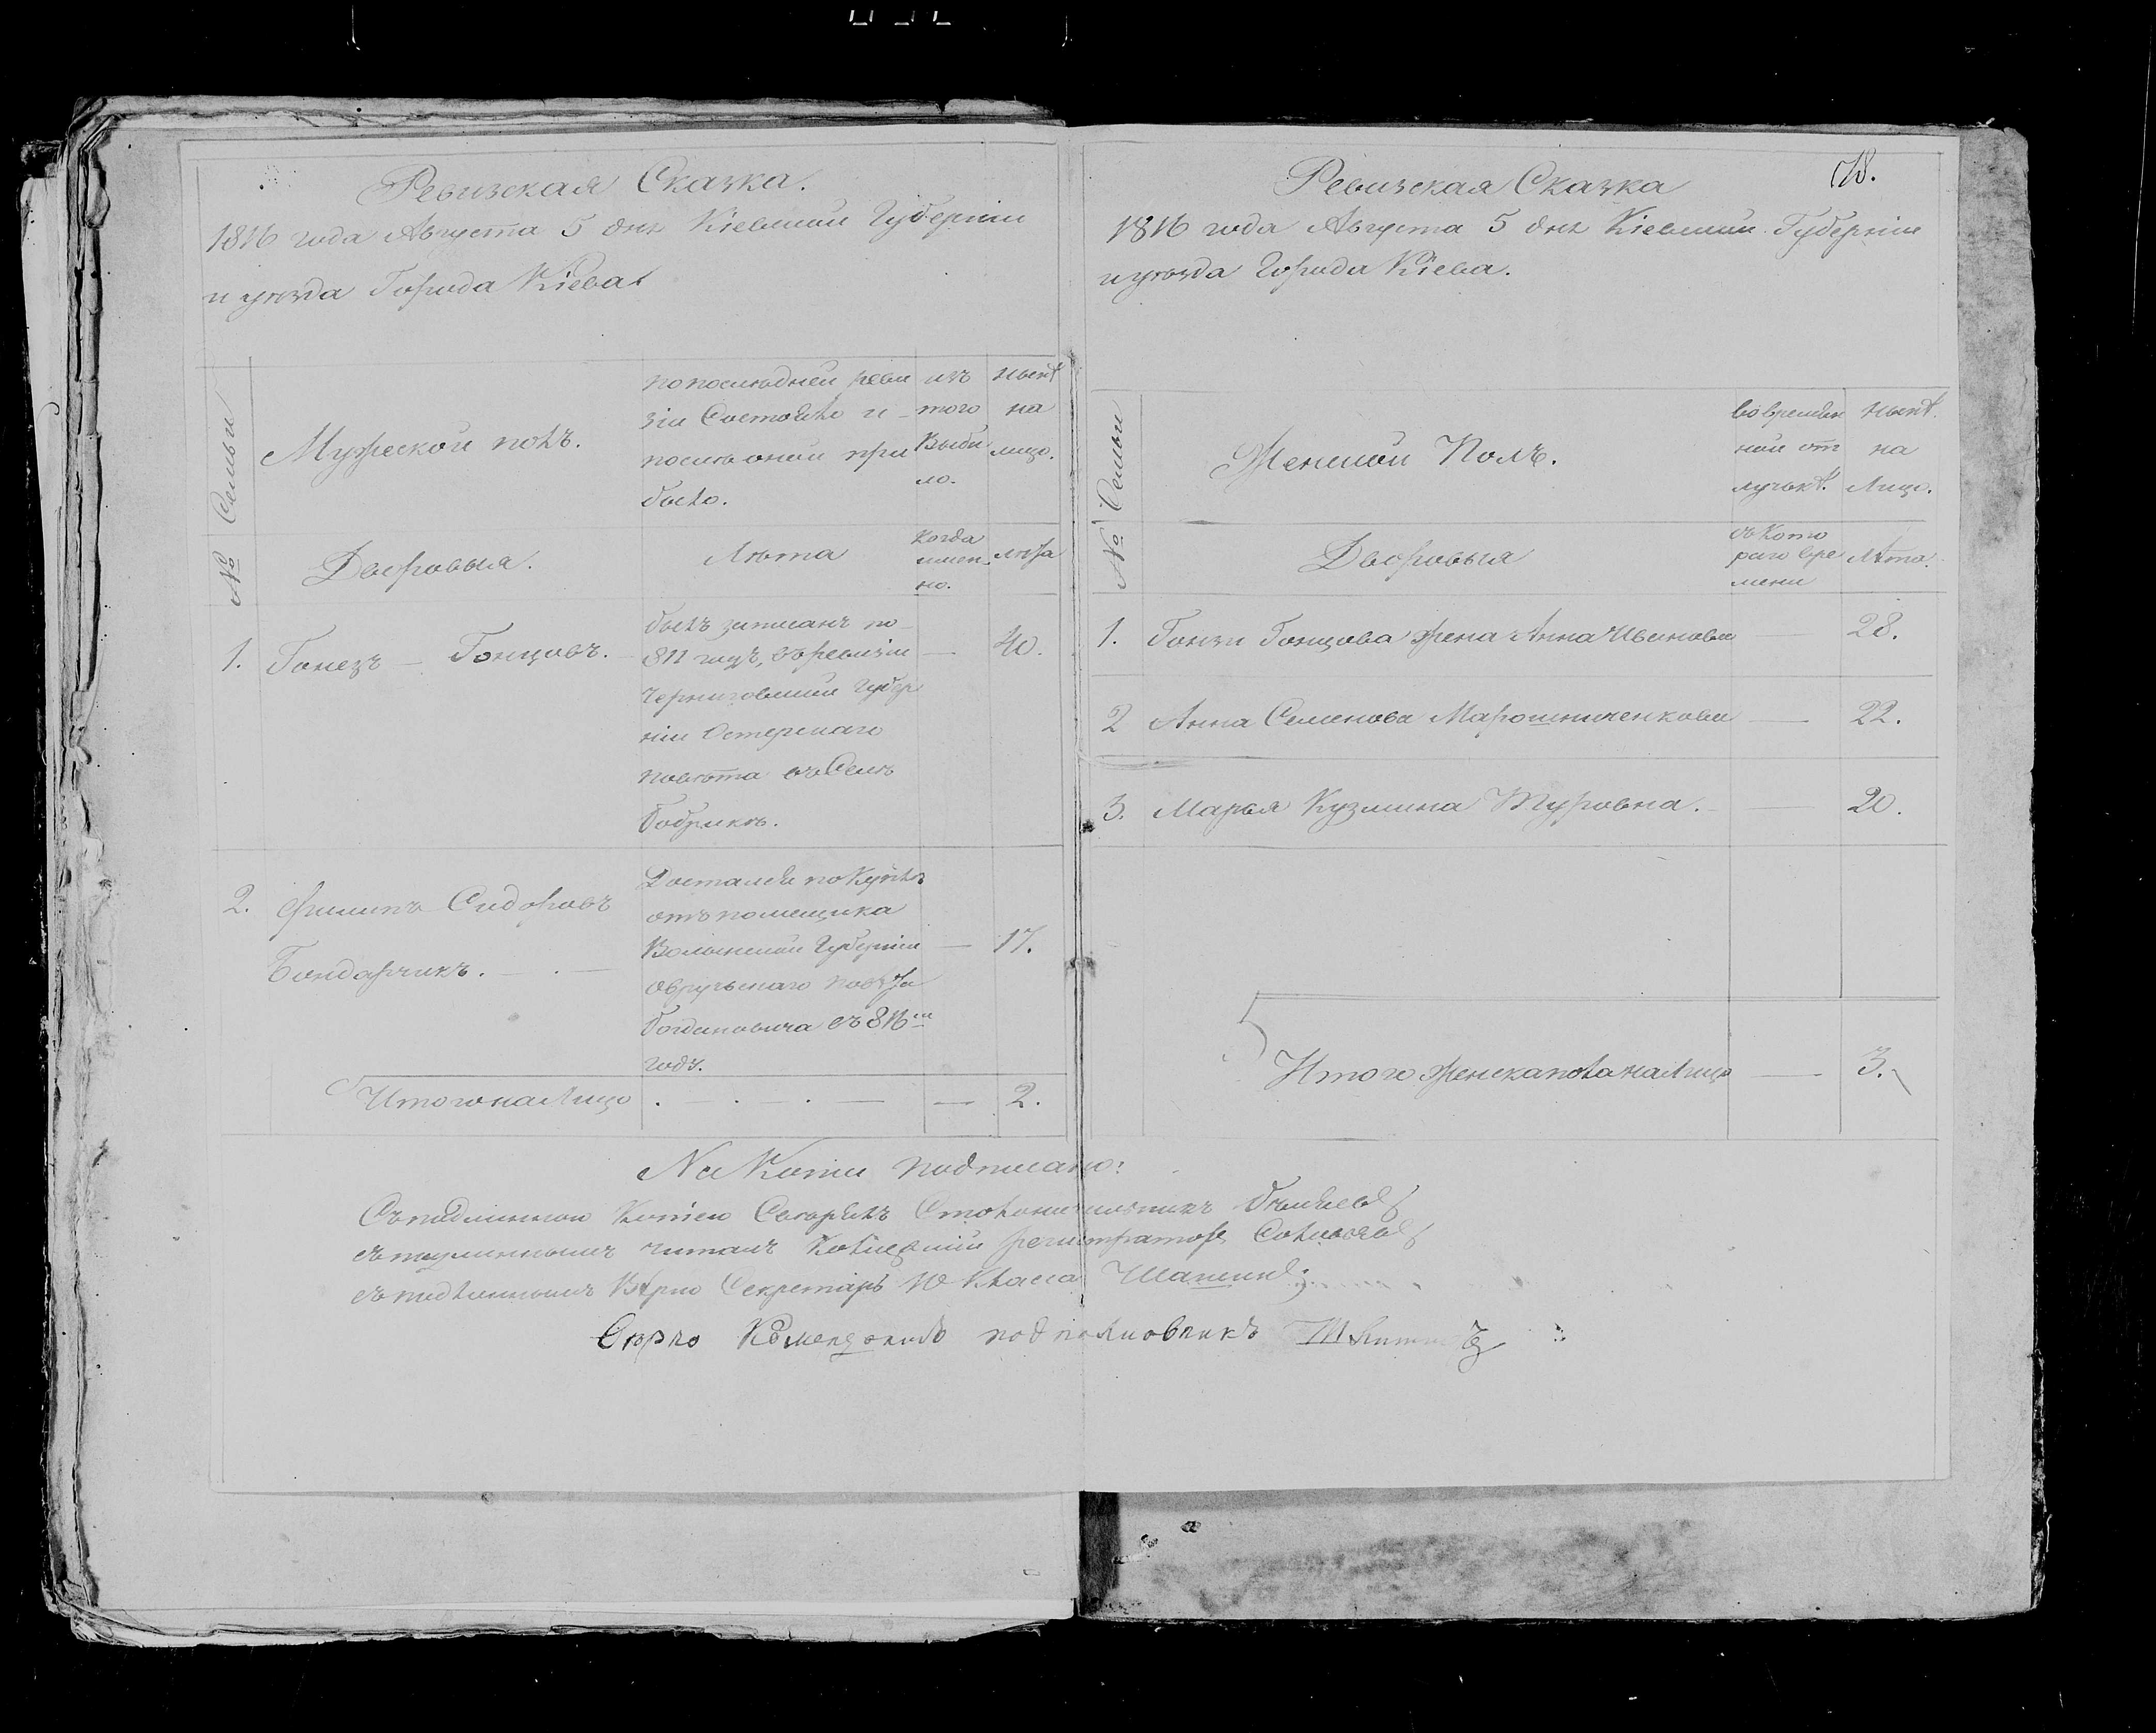 Ревизская Сказка.
1816 года Августа 5 дня Кіевской Губерніи
и уезда Города Кіева
№ Семьи
Мужеской полъ.
по последней реви
зіи Состояло и
после оной при
было.
изъ
того
Выбы
ло.
ныне
на
лицо.
Дворовыя.
Лета
когда
имен.
но.
лета
1. Гонезъ — Гонцовъ. —
былъ записанъ по
811 году, въ ревизіи
Черниговской Губер
ніи Остерскаго
повета въ Селе
Бобрике.
— 40.
2. Филипъ Сидоровъ
Бондарчикъ. — . —
Достался по Купле
отъ помещика
Волынской Губерніи
Овручьскаго повета
Богдановича въ 816 м
годе.
— 17.
Итого на Лицо . — . — . — — 2.
78.
Ревизская Сказка
1816 года Августа 5 дня Кіевской Губерніи
и уезда Города Кіева.
№ Семьи
Женской Полъ.
во времян
ной от
лучке.
ныне.
на
Лицо.
Дворовыя
съ Кото
раго вре
мени
Лета.
1. Гонзи Гонцова жена Анна Иванова — 28.
2 Анна Семенова Марошниченкова — 22.
3. Марья Кузмина Туровна. — 20.
Итого женска пола на Лицо — 3.
На Копіи подписано:
Съ подлинною Копіею Сверялъ
съ подлиннымъ читалъ Колежскій регистраторъ
съ подлиннымъ Верно Секретарь 10 Класса
подполковникъ